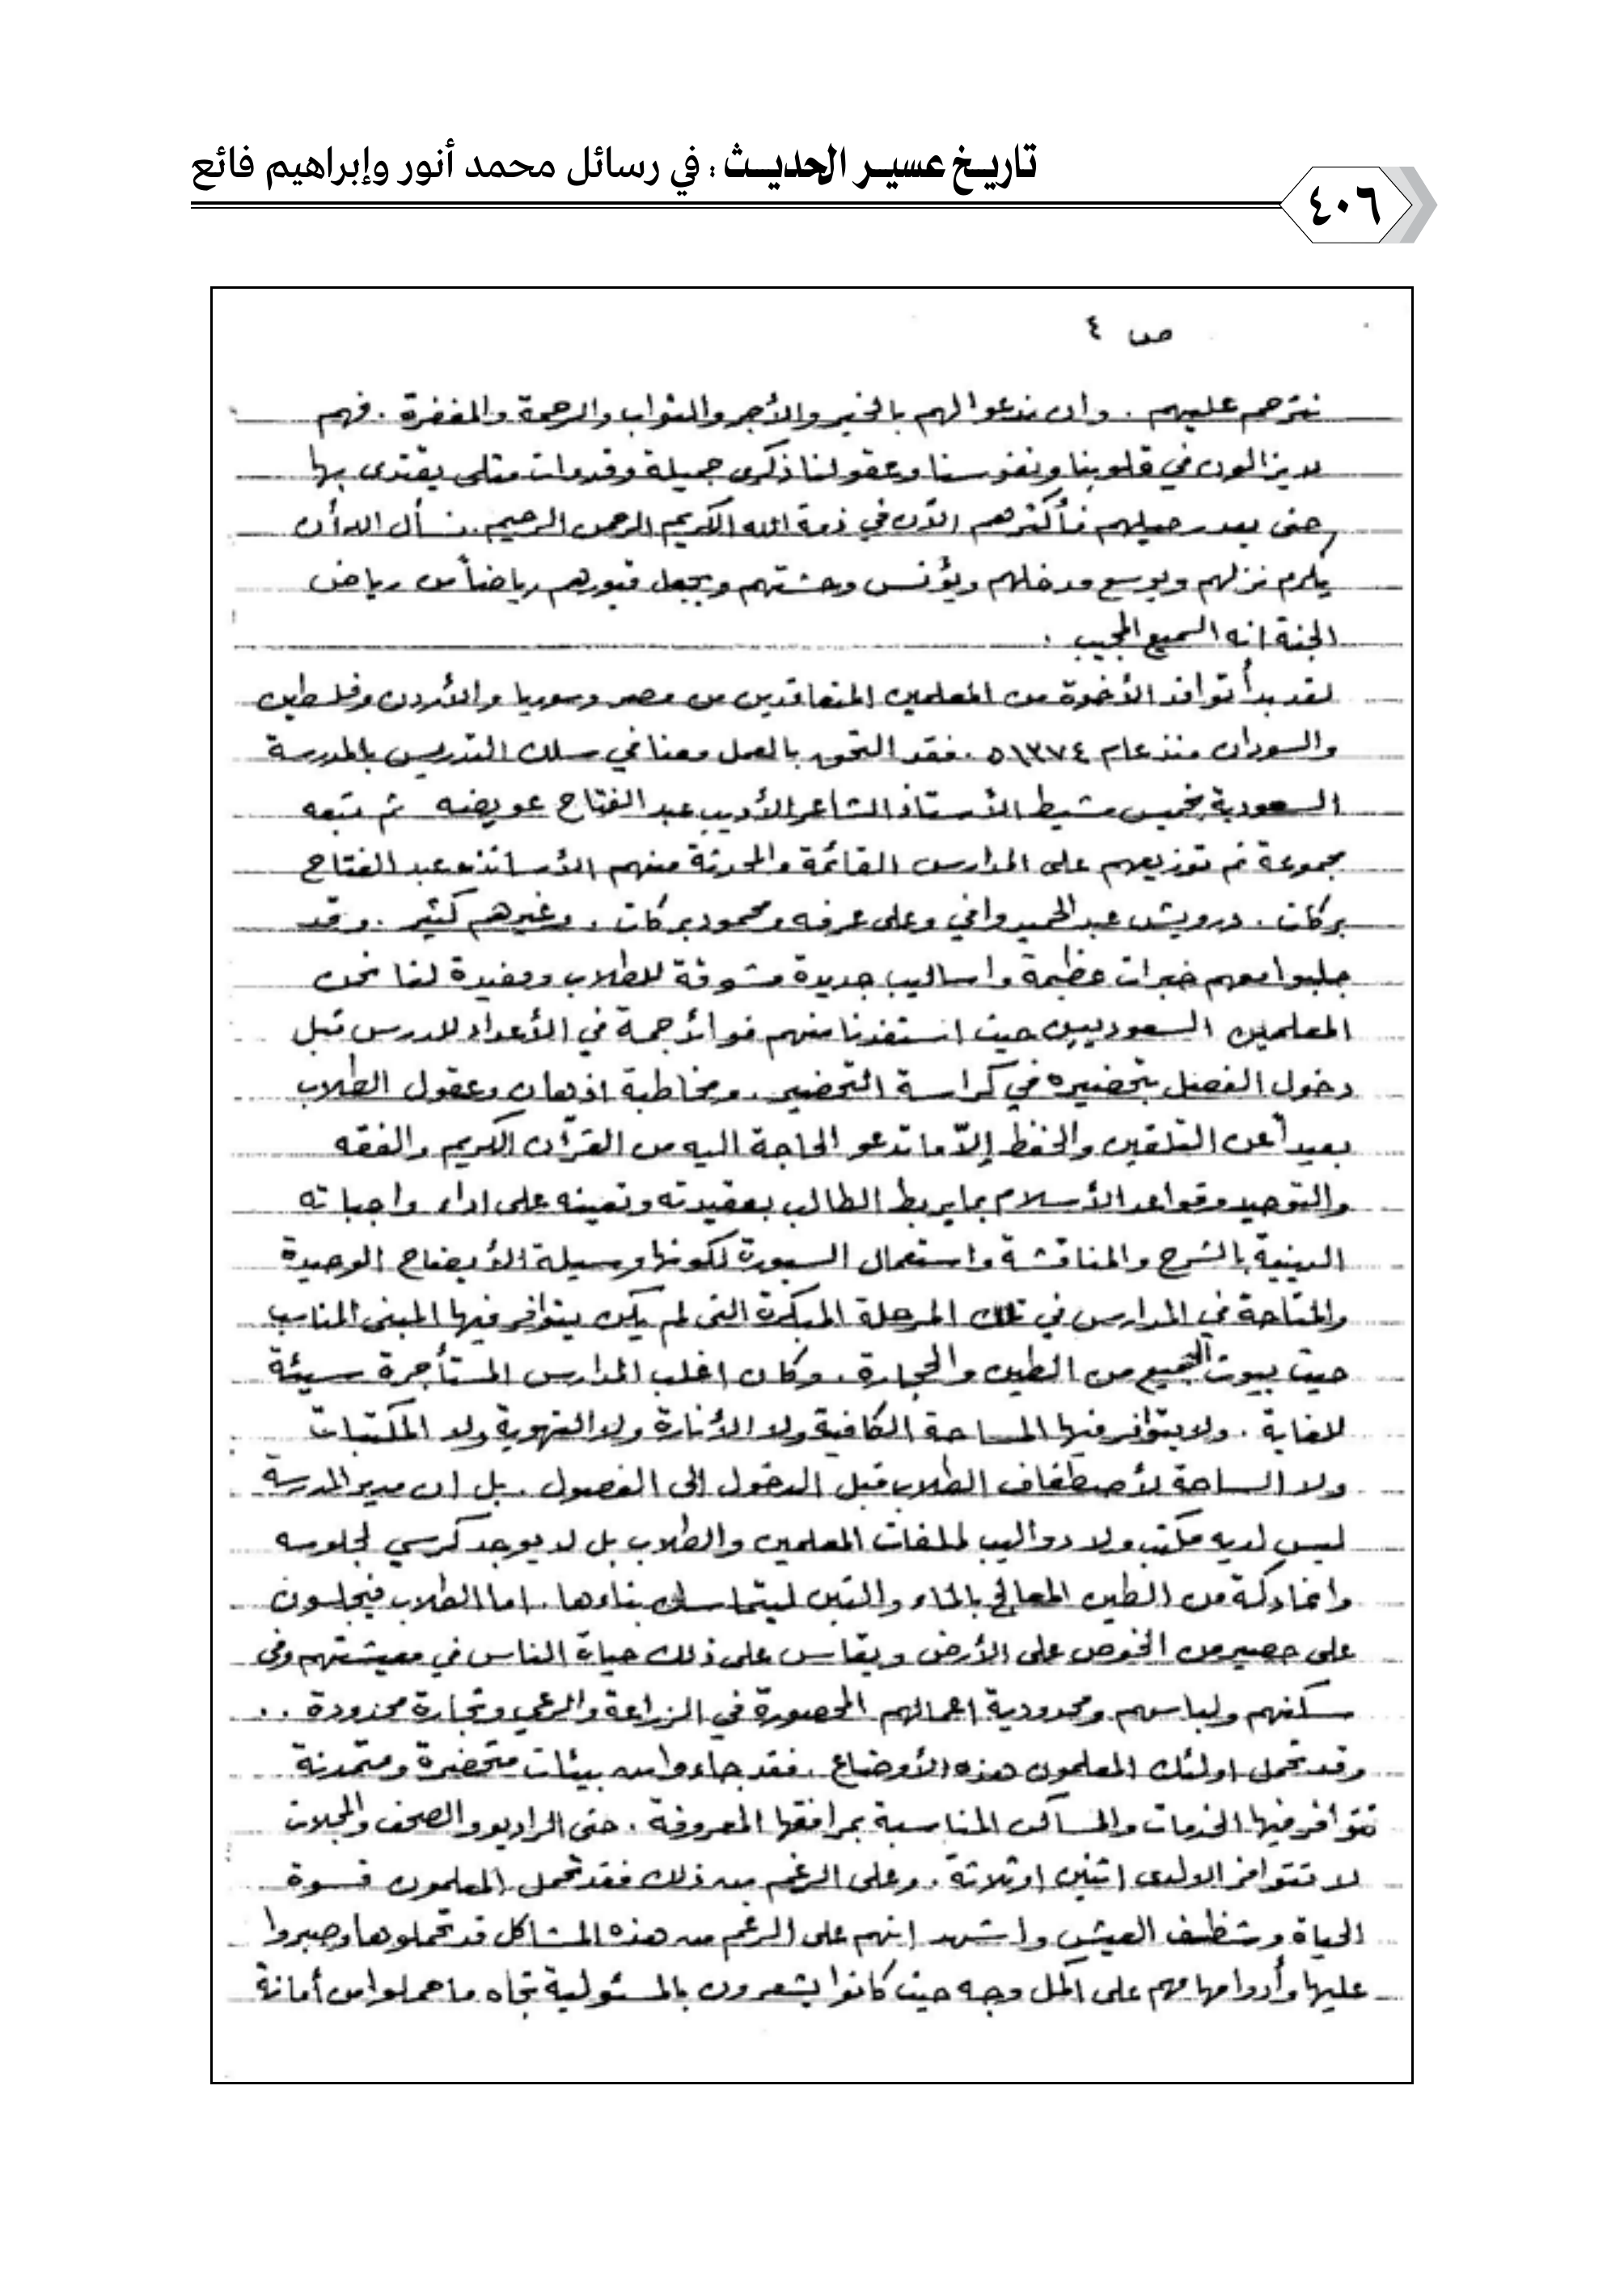 تاريخ عسير الحديث : في رسائل محمد أنور وإبراهيم فائع
٤٠٦
ص ٤
نترحم عليهم . وان ندعوا لهم بالخير والأجر والثواب والرحمة والمغفرة . فهم
لا يزالون في قلوبنا ونفوسنا وعقولنا ذكرى جميلة وقدوات مثلى يقتدى بها
حتى بعد رحيلهم فأكثرهم الآن في ذمة الله الكريم الرحمن الرحيم . نسأل الله أن
يكرم نزلهم ويوسع مدخلهم ويؤنس وحشتهم ويجعل قبورهم رياضاً من رياض
الجنة انه السميع المجيب .
لقد بدأ توافد الأخوة من المعلمين المتعاقدين من مصر وسوريا والأردن وفلسطين
والسودان منذ عام ١٣٧٤ه . فقد التحق بالعمل معنا في سلك التدريس بالمدرسة
السعودية بخميس مشيط الأستاذ الشاعر الأديب عبد الفتاح عويضه ثم تبعه
مجموعة تم توزيعهم على المدارس القائمة والمحدثة منهم الأساتذه عبد الفتاح
بركات . درويش عبد الحميد وافي وعلى عرفه ومحمود بركات . وغيرهم كثير . وقد
جلبوا معهم خبرات عظيمة واساليب جديدة مشوقة للطلاب ومفيدة لنا نحن
المعلمين السعوديين حيث استفدنا منهم فوائد جمة في الأعداد للدرس قبل
دخول الفصل بتحضيره في كراسة التحضير . ومخاطبة اذهان وعقول الطلاب
بعيداً عن التلقين والحفظ إلاّ ما تدعو الحاجة اليه من القرآن الكريم والفقه
والتوحيد وقواعد الأسلام بما يربط الطالب بعقيدته وتعينه على اداء واجباته
الدينية بالشرح والمناقشة واستعمال السبورة لكونها وسيلة الأيضاح الوحيدة
والمتاحة في المدارس في تلك المرحلة المبكرة التى لم يكن يتوافر فيها المبنى المناسب
حيث بيوت الجميع من الطين والحجارة . وكان اغلب المدارس المستأجرة سيئة
للغاية . ولا يتوافر فيها المساحة الكافية ولا الأنارة ولا التهوية ولا المكتبات
ولا الساحة لأصطفاف الطلاب قبل الدخول الى الفصول . بل ان مدير المدرسة
ليس لديه مكتب ولا دواليب لملفات المعلمين والطلاب بل لا يوجد كرسي لجلوسه
وانما دكة من الطين المعالج بالماء والتبن ليتماسك بناءها . اما الطلاب فيجلسون
على حصير من الخوص على الأرض ويقاس على ذلك حياة الناس في معيشتهم وفى
سكنهم ولباسهم ومحدودية اعمالهم المحصورة في الزراعة والرعي وتجارة محدودة . .
وقد تحمل اولئك المعلمون هذه الأوضاع . فقد جاءوا من بيئات متحضرة ومتمدنة
تتوافر فيها الخدمات والمساكن المناسبة بمرافقها المعروفة . حتى الراديو والصحف والمجلات
لا تتوافر الا لدى اثنين او ثلاثة . وعلى الرغم من ذلك فقد تحمل المعلمون قسوة
الحياة وشظف العيش واشهد انهم على الرغم من هذه المشاكل قد تحملوها وصبروا
عليها وأدوا مهامهم على اكمل وجه حيث كانوا يشعرون بالمسئولية تجاه ما حملوا من أمانة